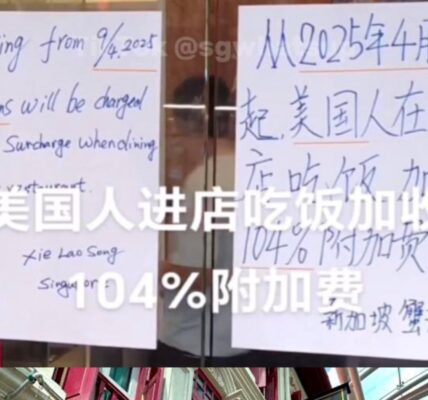 ing from 9/4.2025
ns will be charged
Surcharge when dining
restaurant.
Xie Lao Song
Singapore
从2025年4月
起,美国人在
店吃饭加
104%附加费
新加坡 蟹
美国人进店吃饭加收
104%附加费